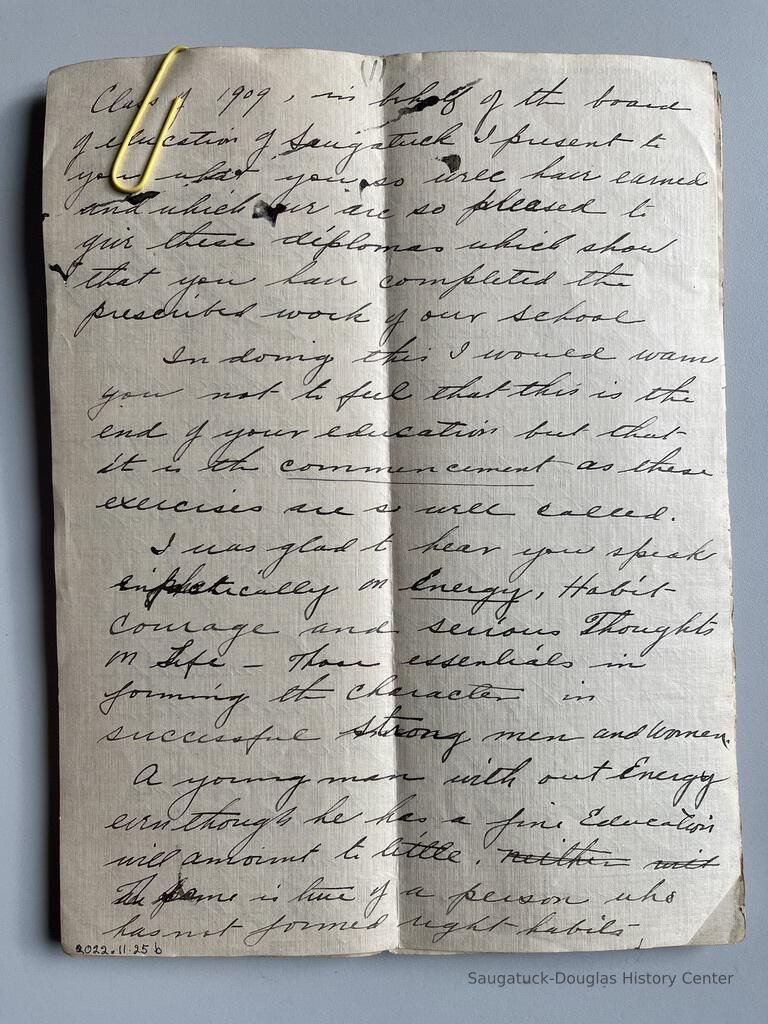 (1)
Class of 1909, in behalf of the board
of education of Saugatuck I present to
you what you so well have earned
and which we are so pleased to
give these diplomas which show
that you have completed the
prescribed work of our school
In doing this I would warn
you not to feel that this is the
end of your education but that
it is the commencement as these
exercises are so well called.
I was glad to hear you speak
emphatically on Energy, Habit
Courage and serious Thoughts
on Life – Those essentials in
forming the character in
successful strong men and women.
A young man with out Energy
even though he has a fine Education
will amount to little. neither wit
The same is true of a person who
has not formed right habits
2022.11.25 b
Saugatuck-Douglas History Center